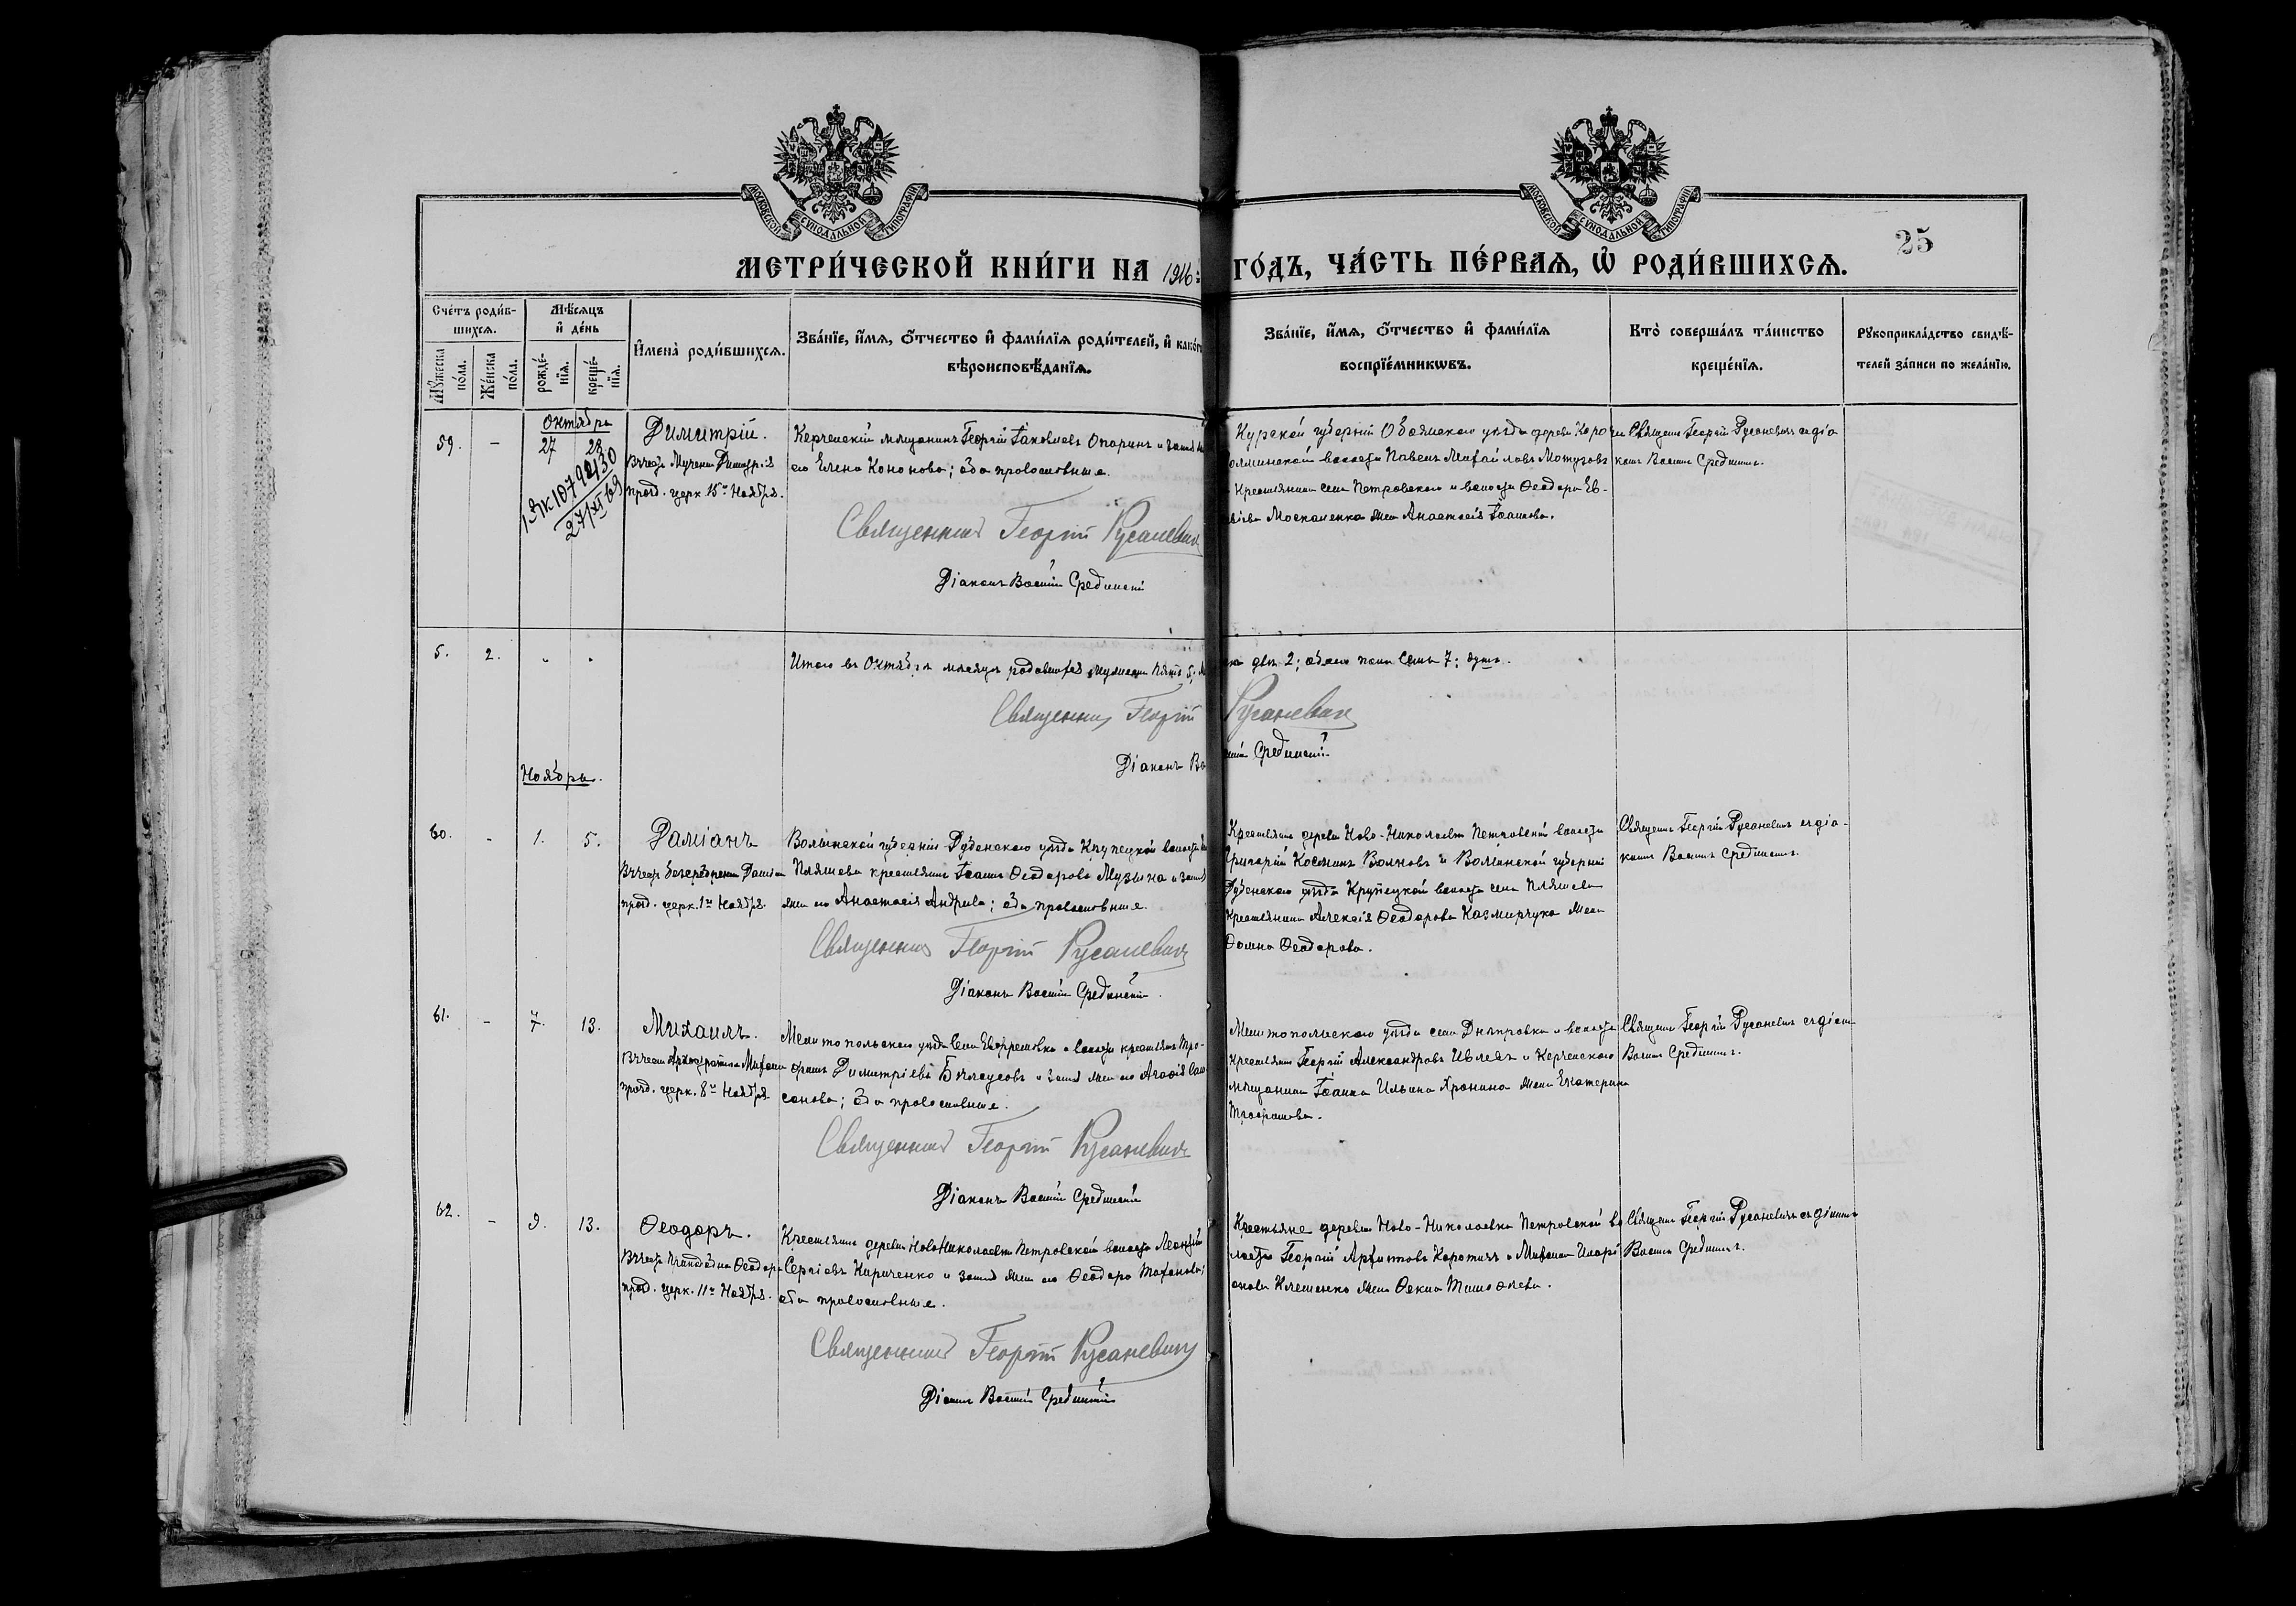 МОСКОВСКОЙ СУНОДАЛЬНОЙ ТИПОГРАФІИ
МОСКОВСКОЙ СУНОДАЛЬНОЙ ТИПОГРАФІИ
25
МЕТРИ́ЧЕСКОЙ КНИ́ГИ НА 1916 ГО́ДЪ, ЧА́СТЬ ПЕ́РВАѦ, Ѡ РОДИ́ВШИХСѦ.
Счéтъ роди́в-
шихсѧ.
Мꙋ́жеска по́ла.
Же́нска по́ла.
Мѣ́сѧцъ
и҆ де́нь
рожде́-
нїѧ.
креще́-
нїѧ.
И҆мена̀ роди́вшихсѧ.
Зва́нїе, и҆́мѧ, ѻ҆́тчество и҆ фами́лїѧ роди́телей, и҆ како́гѡ
вѣроисповѣ́данїѧ.
Зва́нїе, и҆́мѧ, ѻ҆́тчество и҆ фами́лїѧ
воспрїе́мникѡвъ.
Кто̀ соверша́лъ та́инство
креще́нїѧ.
Рꙋкоприкла́дство свидѣ́-
телей за́писи по жела́нїю.
Октября
59. - 27 28
Димитрій.
Въ честь Мученика Димитрія
празд. церк. 15го Ноября.
27/XI 69
Керченскій мѣщанинъ Георгій Іаковлевъ Опаринъ и законная
его Елена Кононова; оба православные.
Священникъ Георгій Русаневичъ
Діаконъ Василій Срединскій
Курской губерніи Обоянскаго уѣзда деревни
волости Павелъ Михайловъ Мотузовъ
Крестьянина села Петровскаго и волости Ѳеодора Ев-
Москаленко жена Анастасія Іоаннова.
Священникъ Георгій Русаневичъ съ діа-
кономъ Василіемъ Срединскимъ.
5. 2. " "
Итого въ Октябрѣ мѣсяцѣ родившихся мужеска пять 5; двѣ 2; обоего пола семь 7; душъ.
Священникъ Георгій Русаневичъ
Діаконъ Василій Срединскій
Ноября.
60. - 1. 5.
Даміанъ
Въ честь безсребренника Даміана
празд. церк. 1го Ноября.
Волынской губерніи Дубенскаго уѣзда Крупецкой волости
Пляшева крестьянинъ Іоаннъ Ѳеодоровъ Музыка и законная
жена его Анастасія Андреева; оба православные.
Священникъ Георгій Русаневичъ
Діаконъ Василій Срединскій.
Крестьянинъ деревни Ново-Николаевки Петровской волости
Григорій Косминъ Волковъ и Волынской губерніи
Дубенскаго уѣзда Крупецкой волости села Пляшева
крестьянина Алексія Ѳеодорова Казмирчука жена
Домна Ѳеодорова.
Священникъ Георгій Русаневичъ съ діа-
кономъ Василіемъ Срединскимъ.
61. - 7. 13.
Михаилъ.
Въ честь Архистратига Михаила
празд. церк. 8го Ноября
Мелитопольскаго уѣзда села Ефремовки и волости крестьянинъ Тро-
фимъ Димитріевъ Бѣлоусовъ и законная жена его Агаѳія Сам-
сонова; оба православные.
Священникъ Георгій Русаневичъ
Діаконъ Василій Срединскій
Мелитопольскаго уѣзда села Днѣпровки и волости
крестьянинъ Георгій Александровъ Ивлевъ и Керченскаго
мѣщанина Іоанна Ильина Хронина жена Екатерина
Трофимова.
Священникъ Георгій Русаневичъ съ діакономъ
Василіемъ Срединскимъ.
62. - 9. 13.
Ѳеодоръ.
Въ честь Преподобнаго Ѳеодора
празд. церк. 11го Ноября.
Крестьянинъ деревни Ново Николаевки Петровской волости Леонтій
Сергіевъ Кириченко и законная жена его Ѳеодора
оба православные.
Священникъ Георгій Русаневичъ
Діаконъ Василій Срединскій
Крестьяне деревни Ново-Николаевки Петровской во-
лости Георгій Коротичъ и Михаила Иларі-
онова Клещенко жена Ѳекла Тимоѳеева.
Священникъ Георгій Русаневичъ съ діакономъ
Василіемъ Срединскимъ.